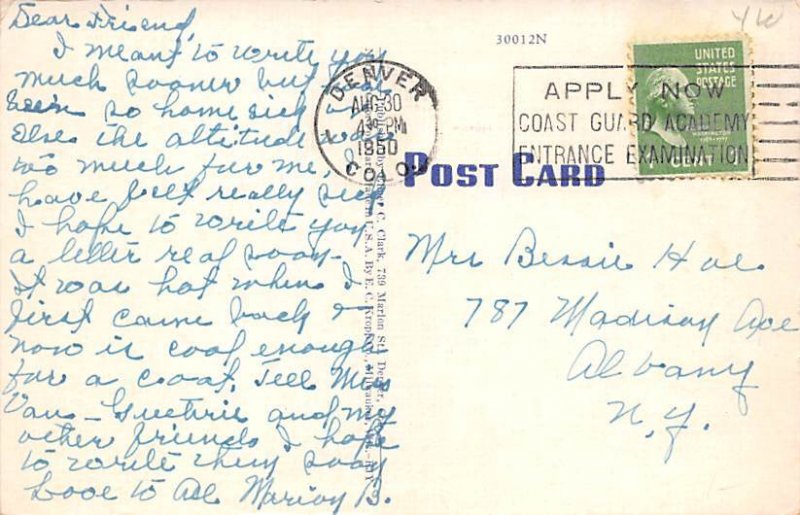 Dear Friend,
I meant to write you
much sooner but have
been so home sick or
else the altitude was
to much for me, I
have felt really sick.
I hope to write you
a letter real soon.
It was hot when I
first came back &
now is cool enough
for a coat. Tell Mrs
Van - Guthrie and my
other friends I hope
to write them soon
Love to All Marion B.
30012N
YW
DENVER
AUG 30
4 30 PM
1950
COLO.
1
APPLY NOW
COAST GUARD ACADEMY
ENTRANCE EXAMINATION
UNITED
STATES
POSTAGE
WASHINGTON
1 CENT
POST CARD
C. Clark, 739 Marion St., Denver,
U.S.A. By E. C. Kropp Co., Milwaukee,
Mrs Bessie Hoe
787 Madison Ave
Albany
N.Y.